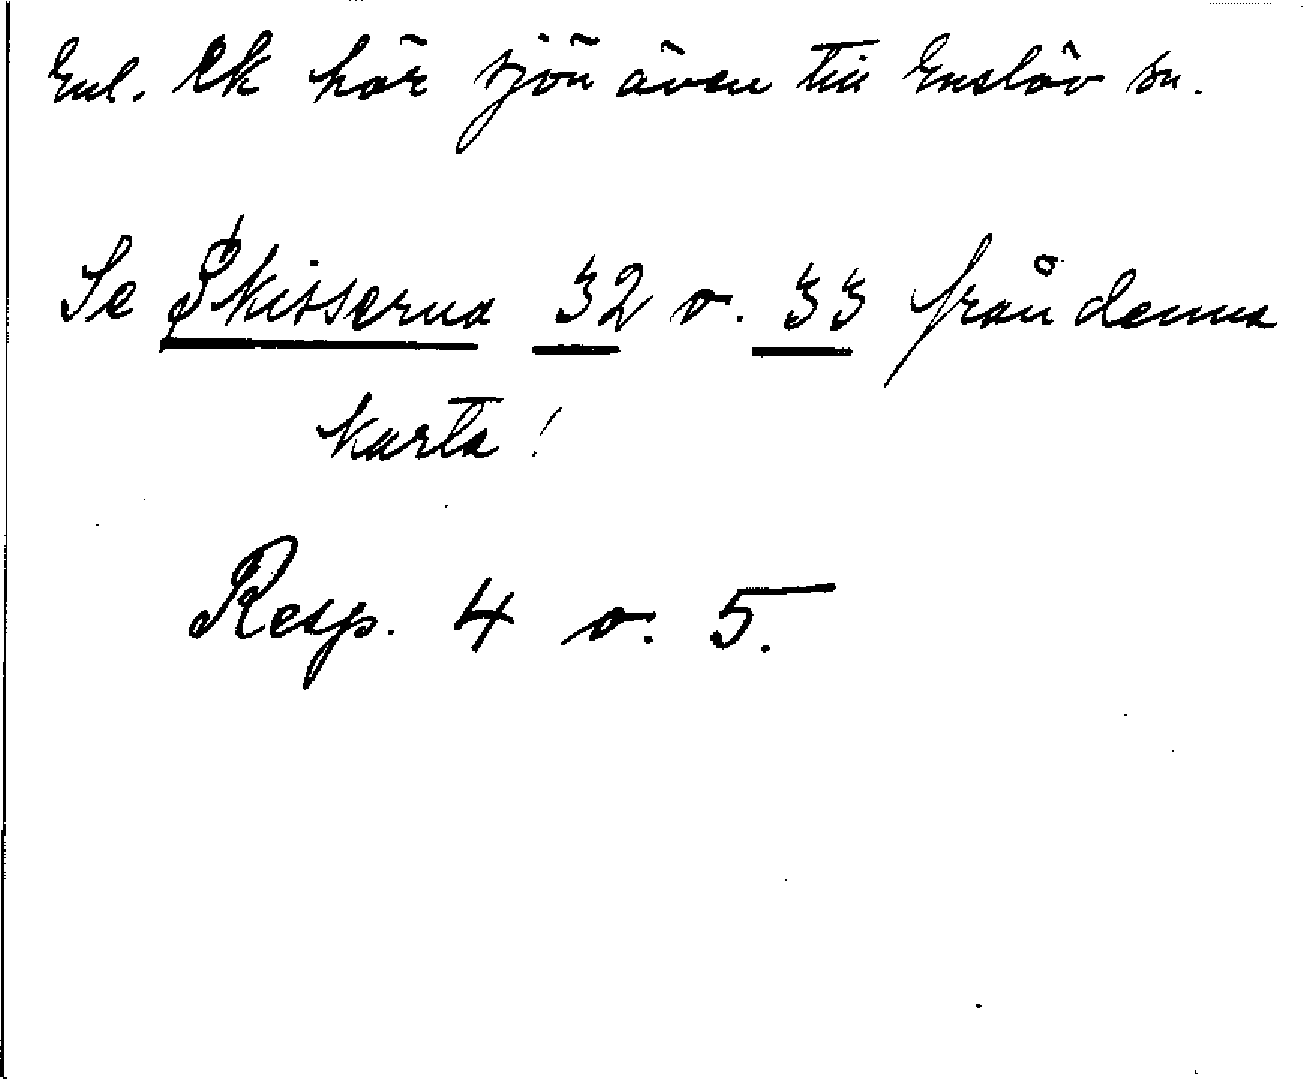 Enl. EK hör sjön även till Enslöv sn.
Se Skisserna 32 o. 33 från denna
karta!
Resp. 4 o. 5.